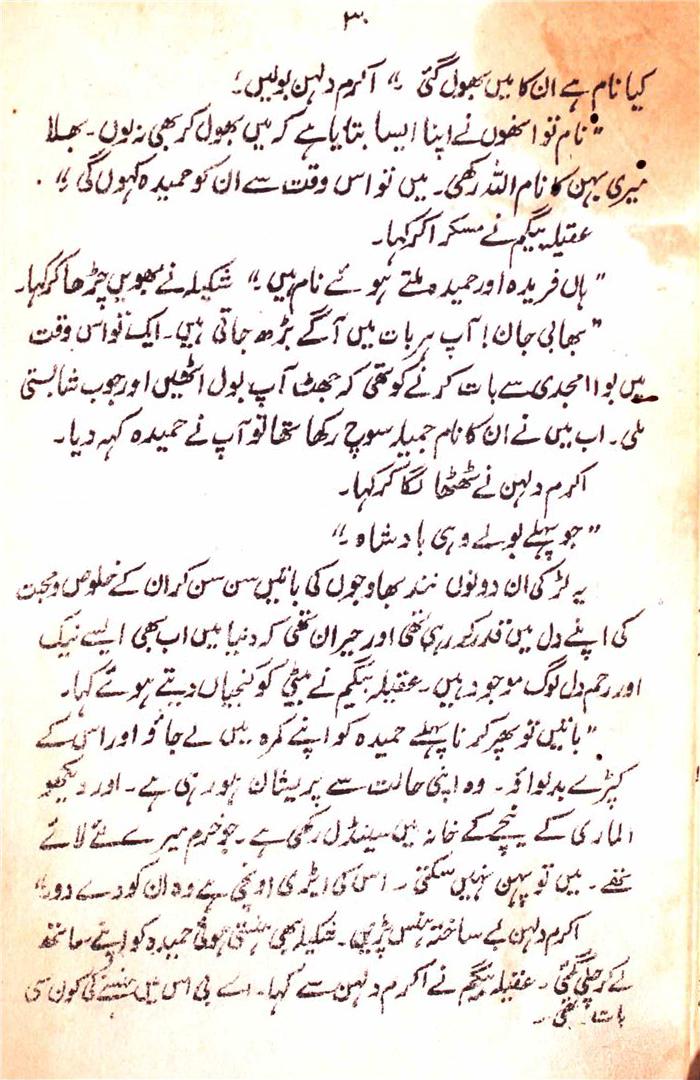 ۳۰
کیا نام ہے ان کا میں بھول گئی ۔“ اکرم دلہن بولیں ؛
”نام تو انھوں نے اپنا ایسا بتایا ہے کہ میں بھول کر بھی نہ لوں ۔ بھلا
میری بہن کا نام اللہ رکھی۔ میں تو اس وقت سے ان کو حمیدہ کہوں گی ۔“
عقیلہ بیگم نے مسکرا کر کہا۔
”ہاں فریدہ اور حمیدہ ملتے ہوئے نام ہیں ۔“ شکیلہ نے بھویں چڑھا کر کہا۔
”بھابی جان ! آپ ہر بات میں آگے بڑھ جاتی ہیں۔ ایک تو اس وقت
میں بوا امجدی سے بات کرنے کو تھی کہ جھٹ آپ بول اٹھیں اور خوب شابستی
ملی۔ اب میں نے ان کا نام جمیلہ سوچ رکھا تھا تو آپ نے حمیدہ کہہ دیا۔
اکرم دلہن نے ٹھٹھا لگا کر کہا۔
”جو پہلے بولے وہی بادشاہ ۔“
یہ لڑکی ان دونوں نند بھاوجوں کی باتیں سن سن کر ان کے خلوص و محبت
کی اپنے دل میں قدر کر رہی تھی اور حیران تھی کہ دنیا میں اب بھی ایسے نیک
اور رحم دل لوگ موجود ہیں۔ عقیلہ بیگم نے بیٹی کو کنجیاں دیتے ہوئے کہا۔
”باتیں تو پھر کرنا پہلے حمیدہ کو اپنے کمرہ میں لے جاؤ اور اس کے
کپڑے بدلواؤ۔ وہ اپنی حالت سے پریشان ہو رہی ہے۔ اور دیکھو
الماری کے نیچے کے خانہ میں سینڈل رکھی ہے۔ جو خرم میرے لئے لائے
تھے۔ میں تو پہن نہیں سکتی۔ اس کی ایڑی اونچی ہے وہ ان کو دے دو۔“
اکرم دلہن بے ساختہ ہنس پڑیں۔ شکیلہ بھی ہنستی ہوئی حمیدہ کو اپنے ساتھ
لے کر چلی گئی۔ عقیلہ بیگم نے اکرم دلہن سے کہا۔ اے بی اس میں ہنسنے کی کون سی
بات تھی۔